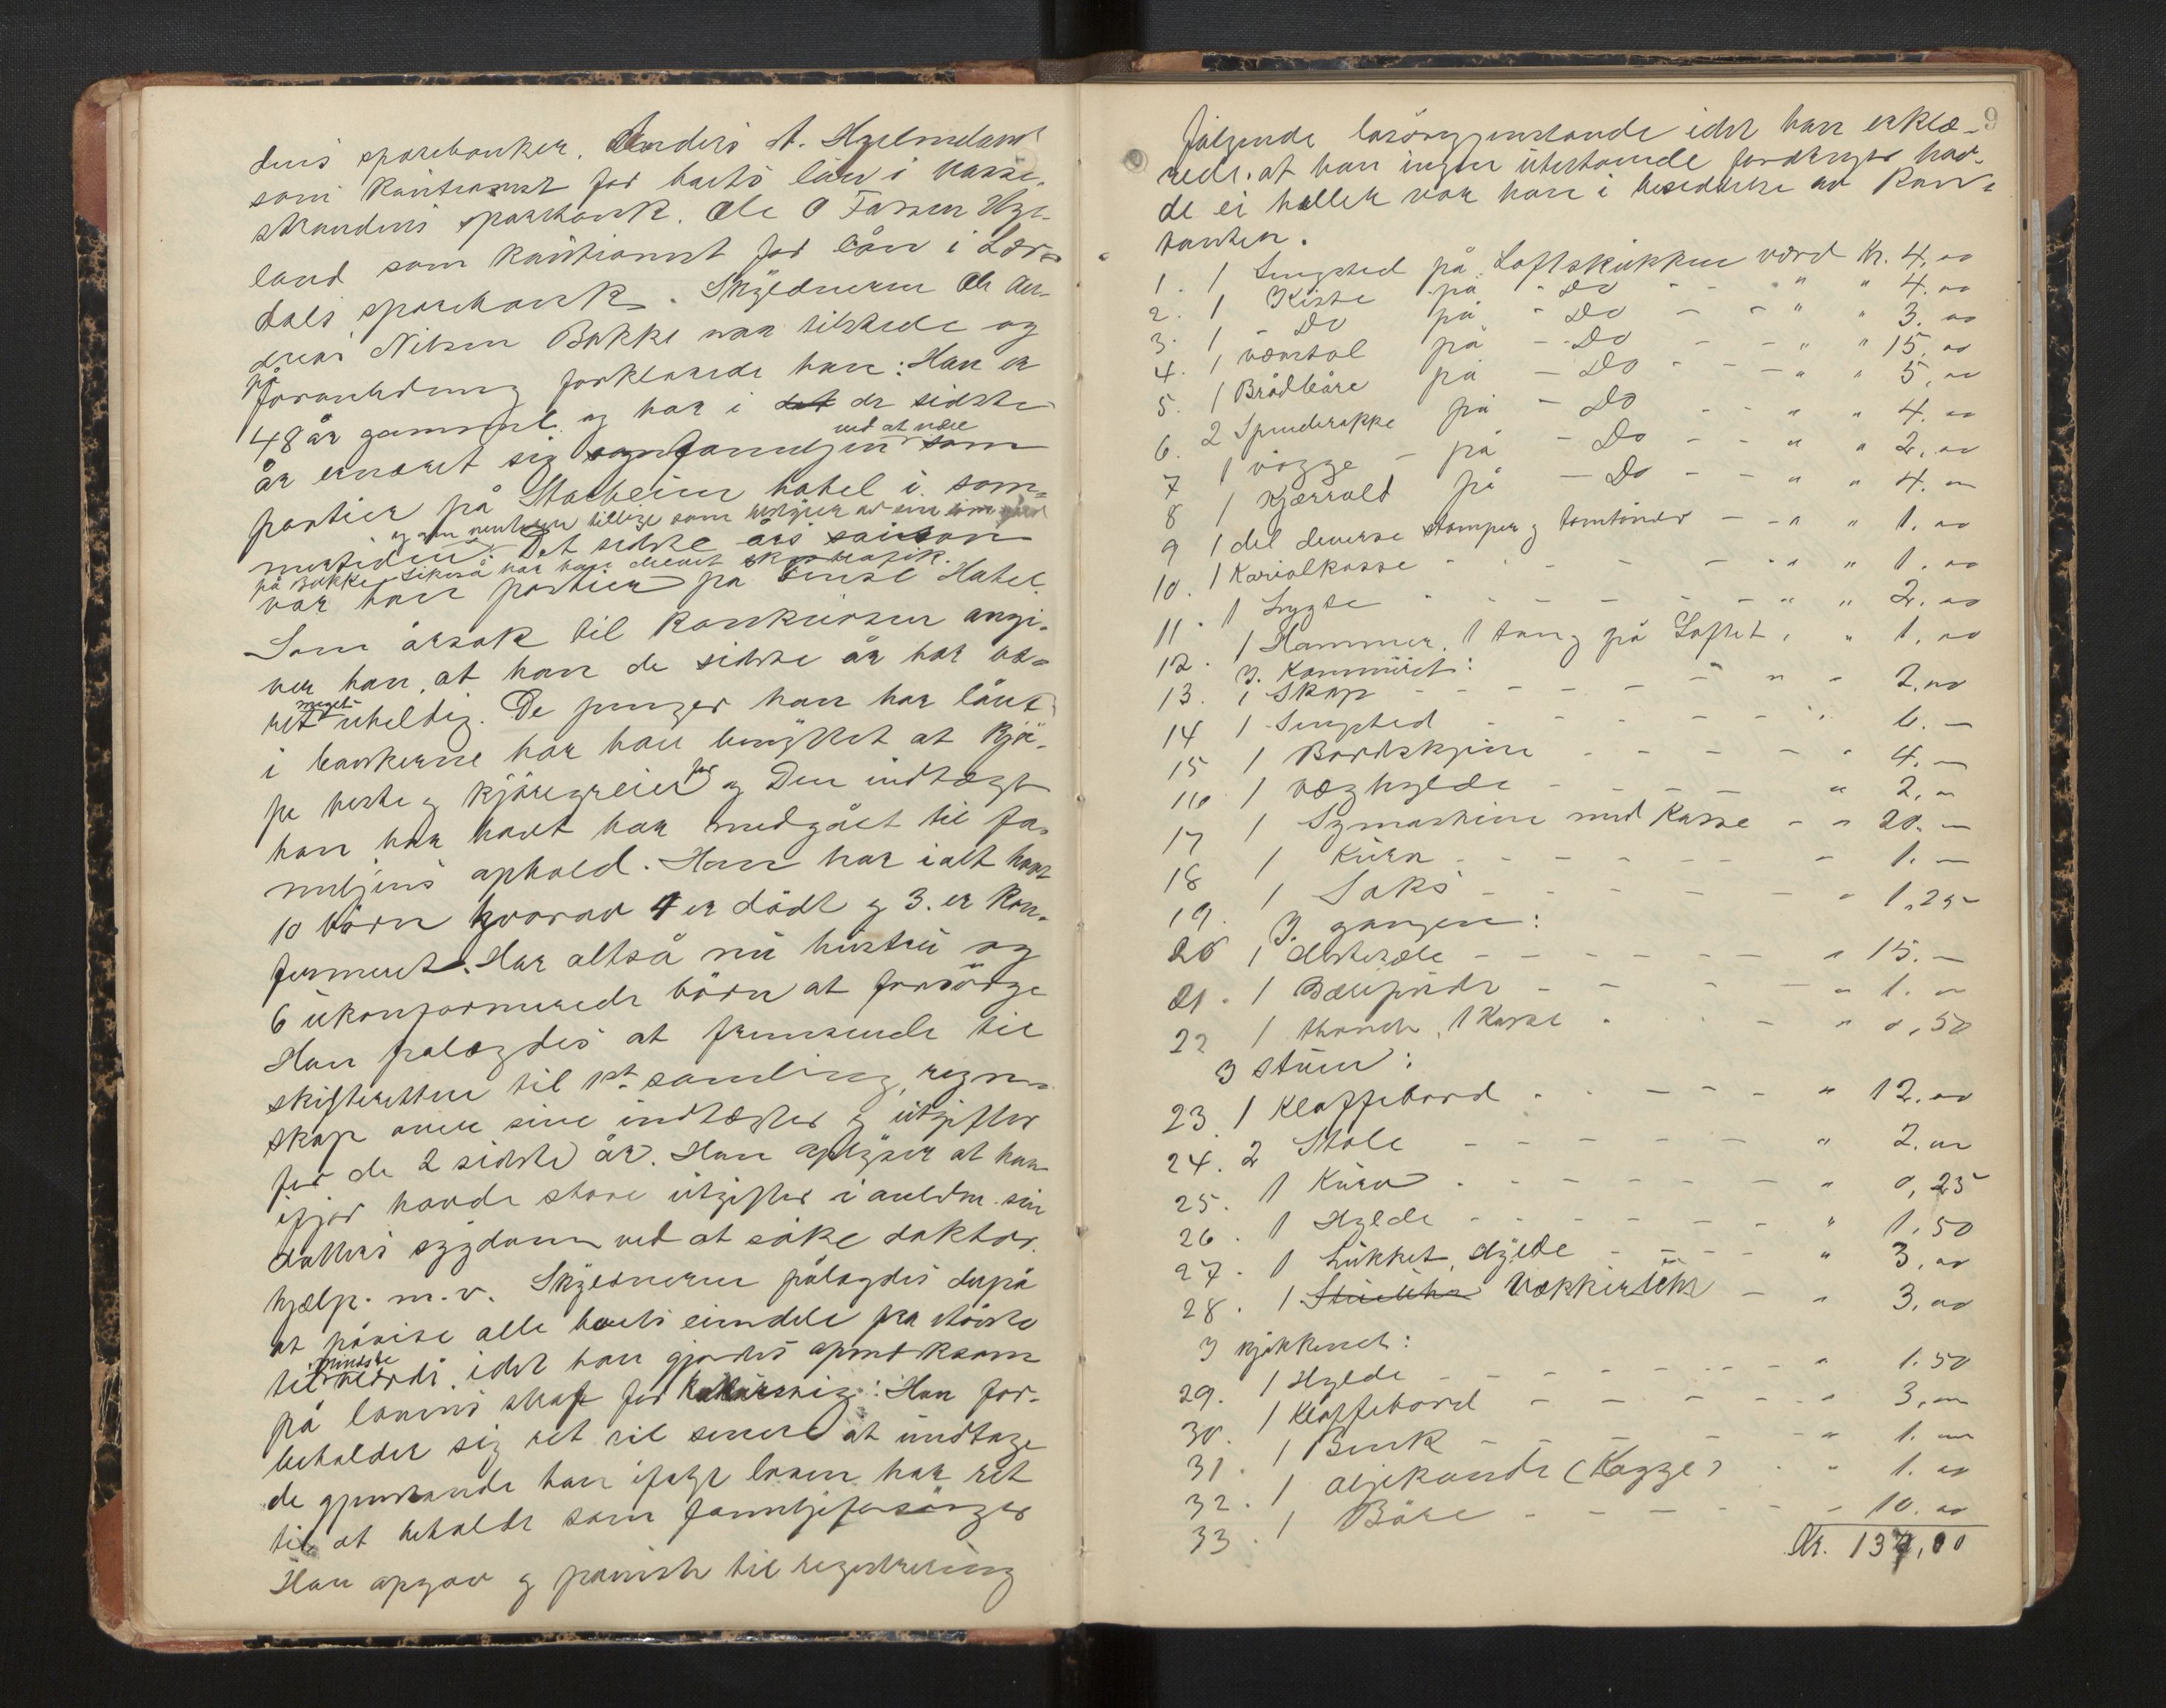 dens sparebanker. Anders A. Hylland
som kautionist for barts lån i
strandens sparebank. Ole O Farnen Hyl-
land som kautionist for lån i Lær-
dals sparebank. Skyldneren Ole An-
dreas Nilsen Bakke var tilstede og
på
foranledning forklarede han: Han er
48 år gammel og har i det de sidste
ved at være
år ernæret sig og familjen som
portier på Stalheim hotel i som-
og om vinteren tillige som
mertiden. Det sidste års saison
på Bakke. Likeså har han drevet skystrafik.
var han portier på Finse Hotel.
Som årsak til konkursen angi-
ver han, at han de sidste år har væ-
meget
ret uheldig. De penger han har lånt
i bankerne har han benyttet at kjø-
for
pe heste og kjøregreier og Den indtægt
han har havt har medgået til fa-
miljens ophold. Han har ialt havt
10 börn hvorav 1 er dödt og 3. er kon-
firmeret. Har altså nu hustru og
6 ukonfirmerede börn at forsörge
Han pålagdes at fremsende til
skifteretten til 1st. samling, regn-
skap over sine indtægter og utgifter
for de 2 sidste år. Han oplyser at han
ifjor havde store utgifter i anledn. sin
datters sygdom ved at söke doktor-
hjælp. m.v. Skyldneren pålagdes derpå
at påvise alle boets eiendele fra störste
mindste
til verdi, idet han gjordes opmerksom
på lovens straf for Han for-
beholder sig ret til senere at undtage
de gjenstande han ifølge loven har ret
til at beholde som familjeforsörger
Han opgav og påviste til registrering
9
følgende lösöregjenstande idet han erklæ-
rede. at han ingen utestående fordringer hav-
de ei heller var han i besiddelse av kon-
tanter.
1. 1 Sengsted på Loftskökken værd Kr. 4. oo
2. 1 Kiste på - Do - - " " 4. oo
3. 1 - Do på - Do - - " " 3. oo
4. 1 vævstol på - Do - - " " 15. oo
5. 1 Brödbåre på - Do - - " " 5. oo
6. 2 Spinderokke på - Do - - " " 4. oo
7 1 vögge - på - Do - - " " 2. oo
8 1 Kjærrald på - Do - - " " 4. oo
9 1 del diverse stamper og tomtönder - - " " 1. oo
10. 1 Karjolkasse - - - - - " " 1. oo
11. 1 Lygte - - - - - " " 2. oo
12. 1 Hammer, 1 tang på Loftet, " 1. oo
I. Kammeret:
13. 1 Skap - - - - - " " 2. oo
14 1 Sengsted - - - - - " 6. —
15 1 Bordskjvie - - - - " 4. —
16 1 væghylde - - - - " 2. —
17 1 Symaskine med Kasse - - " 20. —
18 1 Kurv - - - - - - 1. —
19. 1 Saks - - - - - " 1,25
I. gangen:
20 1 Hestesæle - - - - - " 15. —
21. 1 - - - - " 1. oo
22 1 , 1 Kasse - - " 0,50
I stuen:
23. 1 Klaffebord - - - - - " 12. oo
24. 2 Stole - - - - - " 2. oo
25. 1 Kurv - - - - - " 0,25
26. 1 Hylde - - - - - " 1,50
27. 1 Lukket Hylde - - - " 3, oo
28. 1 Stueuhr Vækkeruhr - " 3, oo
I kjökkenet:
29. 1 Hylde - - - - - " 1. 50
30. 1 Klaffebord - - - - " 3, oo
31. 1 Benk - - - - - " 1. oo
32. 1 oljekande (Kagge) - " 1. oo
33. 1 Båre - - - - - 10. oo
Kr. 137,00